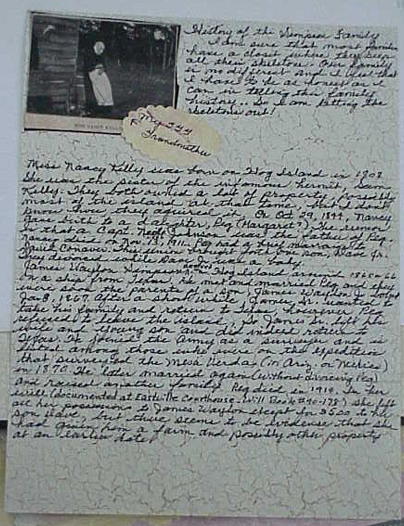 History of the Simpson Family
I am sure that most families
have a closet where they keep
all their skeletons. Our family
is no different and I feel that
I should be as honest as I
can in telling the family
history.. So I am letting the
skeletons out!
MISS NANCY KELLY
My GGG
Grandmother
Miss Nancy Kelly was born on Hog Island in 1808
She was the sister of the infamous hermit, Sam
Kelly. They both owned a lot of property, possibly
most of the island at that time. But I don't
know how they acquired it. On Oct 29, 1844, Nancy
gave birth to a daughter, Peg (Margaret?). The rumor
is that a Capt. was the father of Peg.
Nancy died Nov. 13, 1911. Peg had a brief marriage to
David Conover. This union brought forth one son, Dave Jr.
They divorced while Dave Jr. was a lad.
James Waylon Simpson Hog Island around 1865 or 66
on a ship from Texas. He met and married Peg and they
were the parents of son James Waylon Jr. born
Jan 8, 1867. After a short while, James, Sr. wanted to
take his family and return to Texas, however Peg
would not leave the island. So James Sr. left his
wife and young son and did indeed return to
Texas. He joined the Army as a surveyor and is
listed among those who were on the expedition
that surveyed the Mesa Verda (in Ariz. or Mexico)
in 1870. He later married again (without divorcing Peg)
and raised another family. Peg died in 1919. In her
will (documented at Eastville Courthouse - Will Book #40-178) she left
all her possessions to James Waylon except for $500 to her
son Dave. But there seems to be evidence that she
had given him a farm and possibly other property
at an earlier date.